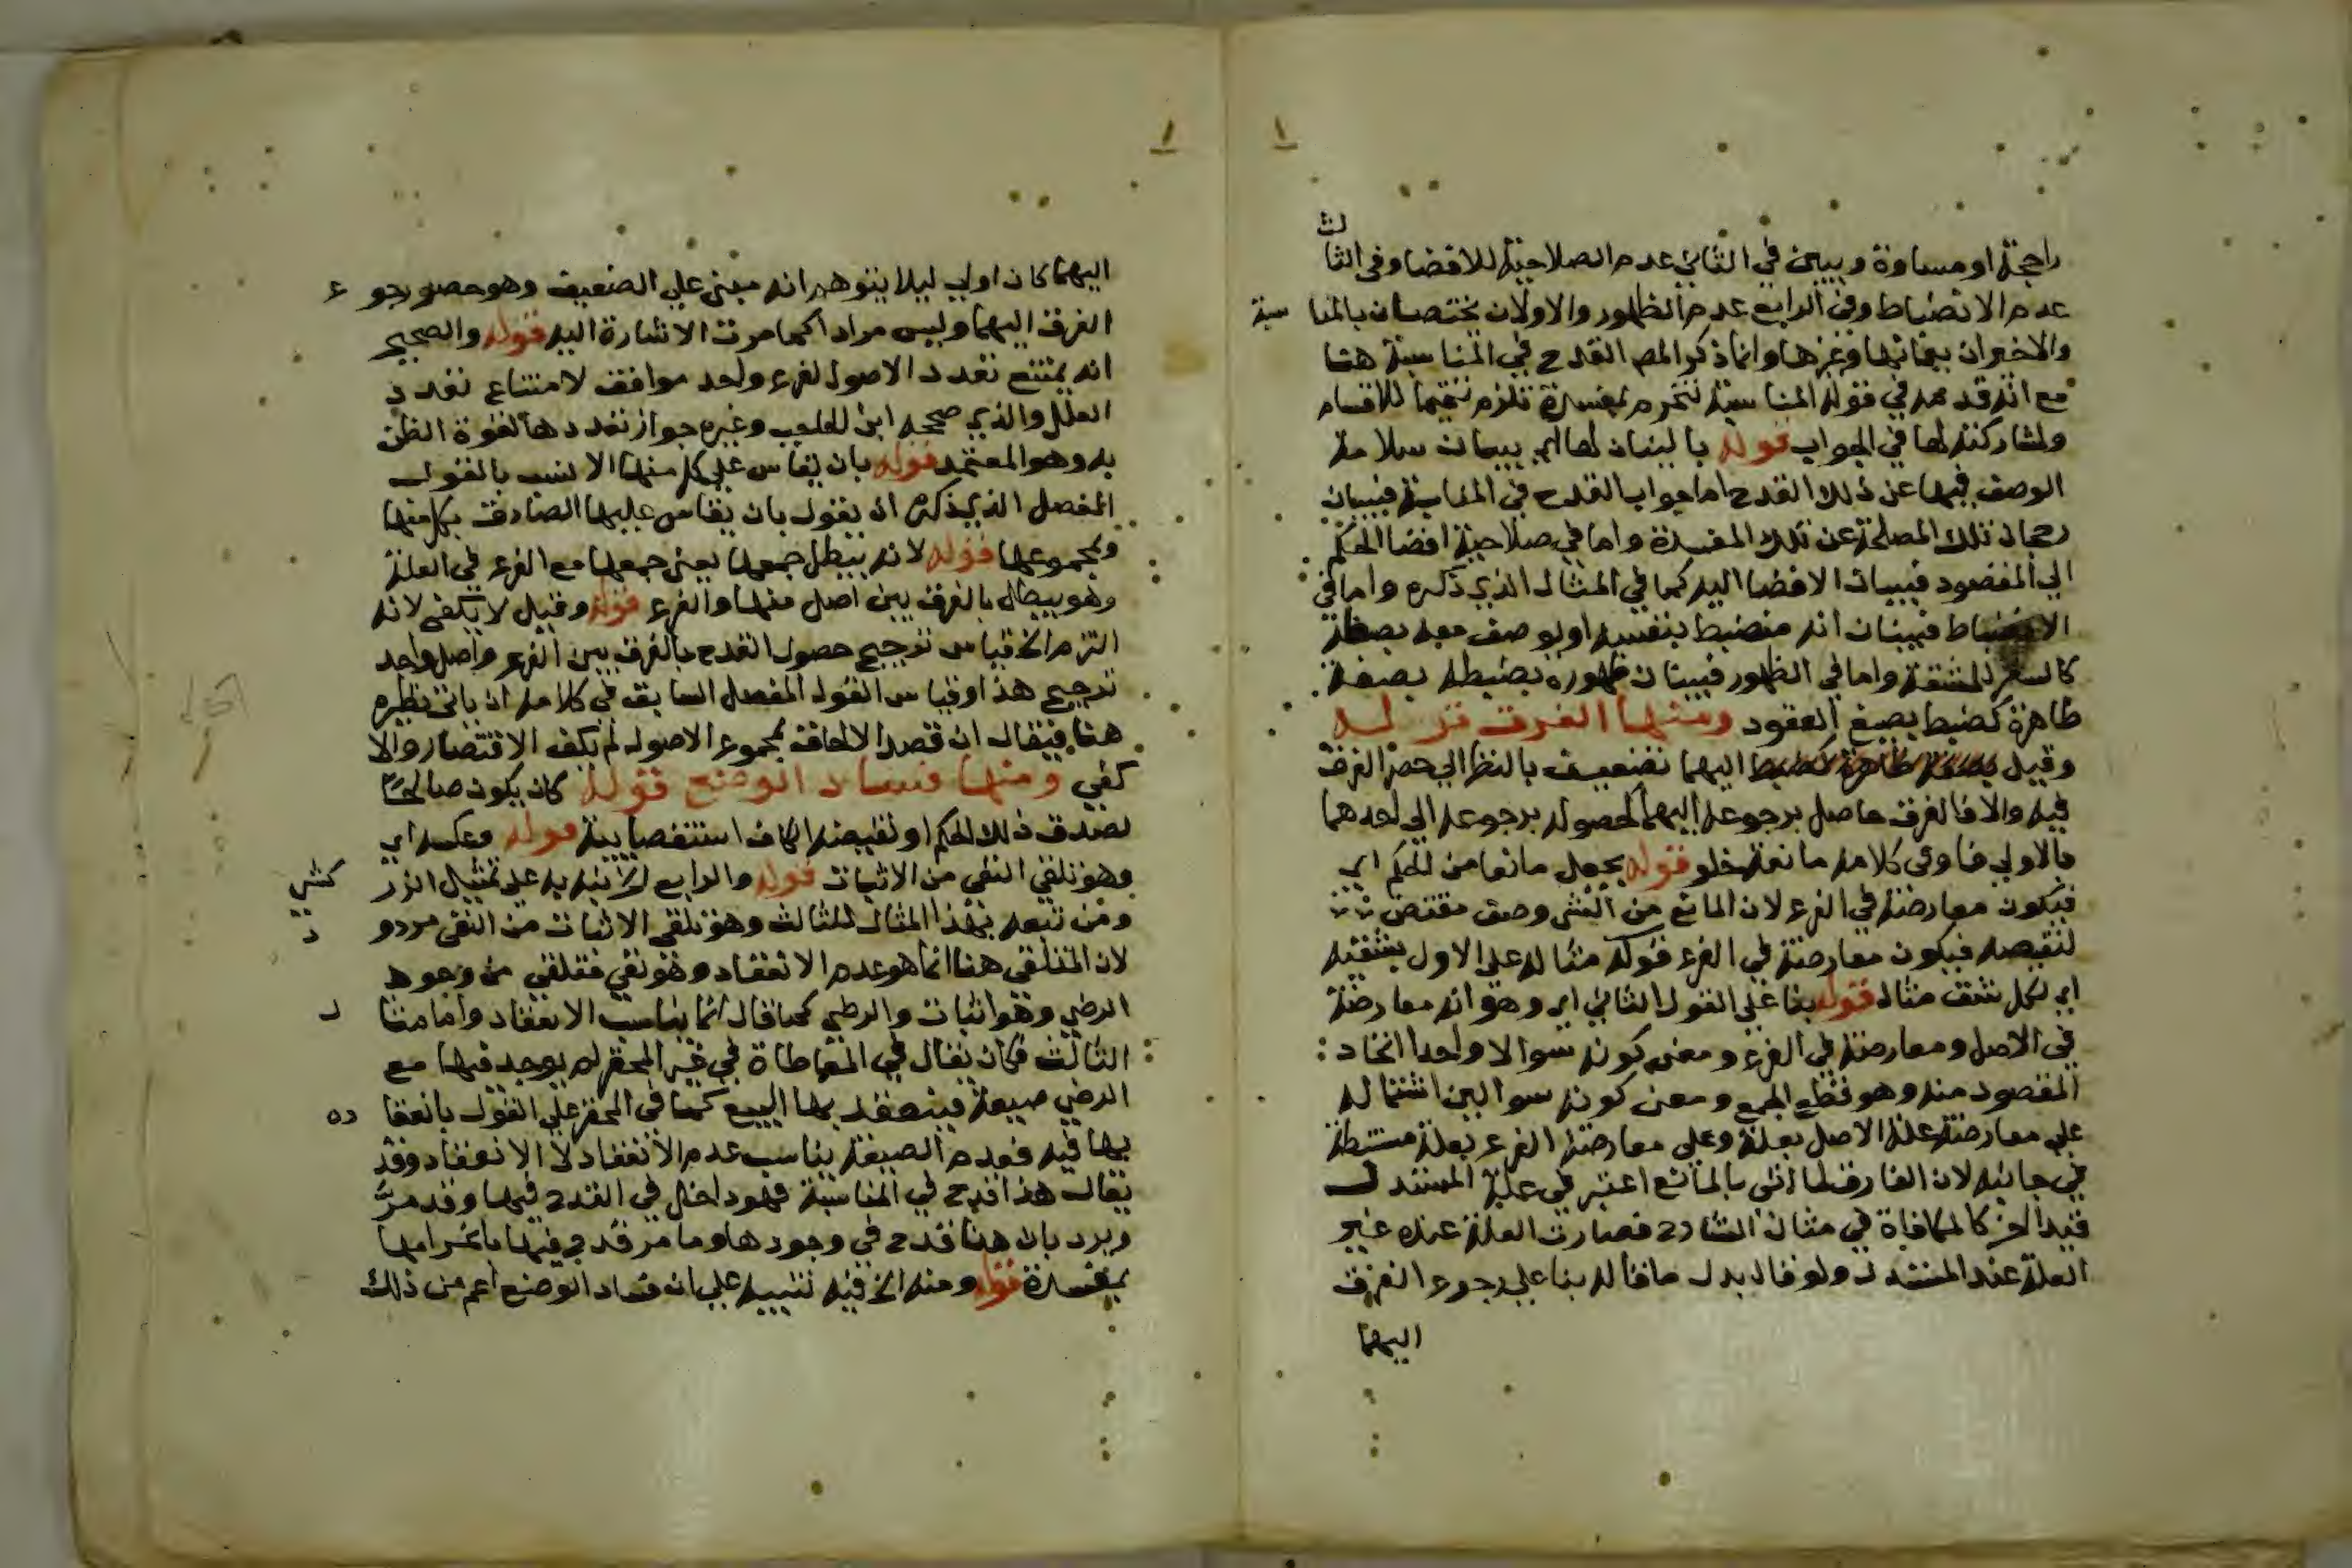 راجحة او مساوة ويبين في الثاني عدم الصلاحية للافضا وفي الثالث
عدم الانضباط وفي الرابع عدم الظهور والاولان يختصان بالمناسبة
والاخيران يعمانها وغيرها وانما ذكر المص القدح في المناسبة هنا
مع انه قدمه في قوله المناسبة تنخرم بمفسدة تلزم تتميما للاقسام
ولمشاركته لها في الجواب قوله بالبيان لها اي ببيان سلامة
الوصف فيها عن ذلك القدح اما جواب القدح في المناسبة فببيان
رجحان تلك المصلحة عن تلك المفسدة واما في صلاحية افضا الحكم
الي المقصود فببيان الافضا اليه كما في المثال الذي ذكره واما في
الانضباط فببيان انه منضبط بنفسه او بوصف معه بضبطه
كالسفر للمشقة واما في الظهور فببيان ظهوره بضبطه بصفة
ظاهرة كضبط بصيغ العقود ومنها الفرق قوله
وقيل اليهما تضعيف بالنظر الي حصر الفرق
فيه والا فالفرق حاصل برجوعه اليهما لحصوله برجوعه الي احدهما
بالاولي فاو في كلامه مانعة خلو قوله يجعل مانعا من الحكم اي
فيكون معارضة في الفرع لان المانع من الشي وصف مقتض
لنقيضه فيكون معارضة في الفرع قوله مثاله علي الاول بشقيه
اي لكل شق مثال قوله بنا علي القول الثاني اي وهو انه معارضة
في الاصل ومعارضة في الفرع ومعني كونه سوالا واحدا اتحاد
المقصود منه وهو قطع الجمع ومعني كونه سوالين اشتماله
علي معارضة علة الاصل بعلة وعلي معارضة الفرع بعلة مستنبطة
في جانبه لان الفارق لما اتي بالمانع اعتبر في علية المستدل
قيدا اخر كالمكافاة في مثال الشارح فصارت العلة عنده غير
العلة عند المستدل ولو قال بدل ما قاله بنا علي رجوع الفرق
اليهما
اليهما كان اولي ليلا يتوهم انه مبني علي الضعيف وهو حصر رجوع
الفرق اليهما وليس مرادا كما مرت الاشارة اليه قوله والصحيح
انه يمتنع تعدد الاصول لفرع واحد موافق لامتناع تعدد
العلل والذي صححه ابن الحاجب وغيره جواز تعددها لقوة الظن
به وهو المعتمد قوله بان يقاس علي كل منها الانسب بالقول
المفصل الذي ذكره ان يقول بان يقاس عليها الصادق بكل منها
وبمجموعها قوله لانه يبطل جمعها يعني جمعها مع الفرع في العلة
وهو يبطل بالفرق بين اصل منها والفرع قوله وقيل لا يكفي لانه
التزم الخ قياس ترجيح حصول القدح بالفرق بين الفرع واصل واحد
ترجيح هذا وقياس القول المفصل السابق في كلامه ان ياتي نظيره
هنا فيقال ان قصد الالحاق بمجموع الاصول لم يكف الاقتصار والا
كفي ومنها فساد الوضع قوله كان يكون صالحا
لضد ذلك الحكم او نقيضه الكاف استقصايية قوله وعكسه اي
وهو تلقي النفي من الاثبات قوله والرابع الخ نبه به علي تمثيل الزركشي
ومن تبعه بهذا المثال للثالث وهو تلقي الاثبات من النفي مردود
لان المتلقي هنا انما هو عدم الانعقاد وهو نفي فتلقي من وجود
الرضي وهو اثبات والرضي كما قال انما يناسب الانعقاد واما مثال
الثالث فكان يقال في المعاطاة في غير المحقر لم يوجد فيها مع
الرضي صيغة فينعقد بها البيع كما في المحقر علي القول بانعقاده
بها فيه فعدم الصيغة يناسب عدم الانعقاد لا الانعقاد وقد
يقال هذا قدح في المناسبة فهو داخل في القدح فيها وقد مر
ويرد بان هنا قدح في وجودها وما مر قدح فيها بانخرامها
بمفسدة قوله ومنه الخ فيه تنبيه علي ان فساد الوضع اعم من ذلك